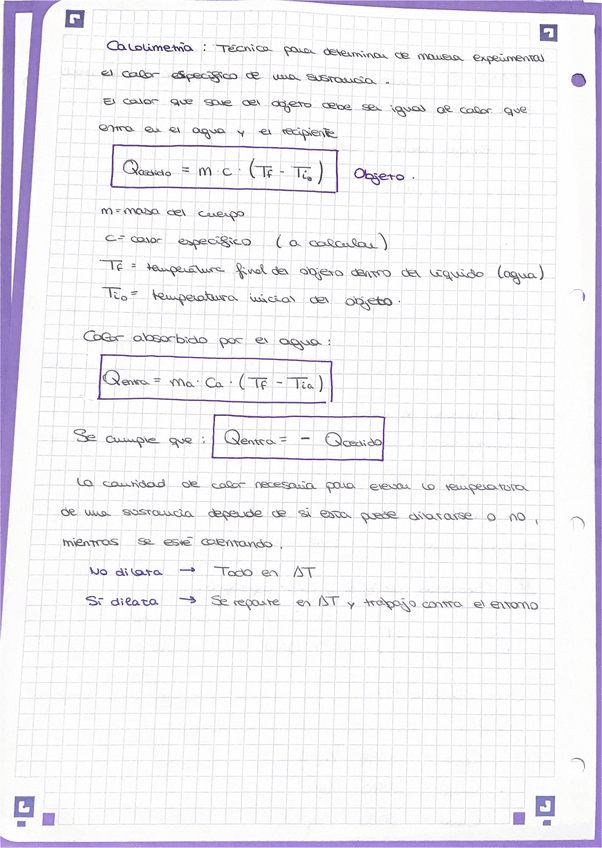 Calolimetria : Técnica para determinar de manera experimental
el calor específico de una sustancia .
El calor que sale del objeto debe ser igual al calor que
entra en el agua y el recipiente
Qcedido = m · c · (Tf - Tio) Objeto .
m = masa del cuerpo
c = calor específico ( a calcular )
Tf = temperatura final del objeto dentro del líquido (agua)
Tio = temperatura inicial del objeto .
Calor absorbido por el agua :
Qentra = ma · Ca · ( Tf - Tia )
Se cumple que : Qentra = - Qcedido
La cantidad de calor necesaria para elevar la temperatura
de una sustancia depende de si esta puede dilatarse o no ,
mientras se esté calentando .
No dilata → Todo en ΔT
Si dilata → Se reparte en ΔT y trabajo contra el entorno